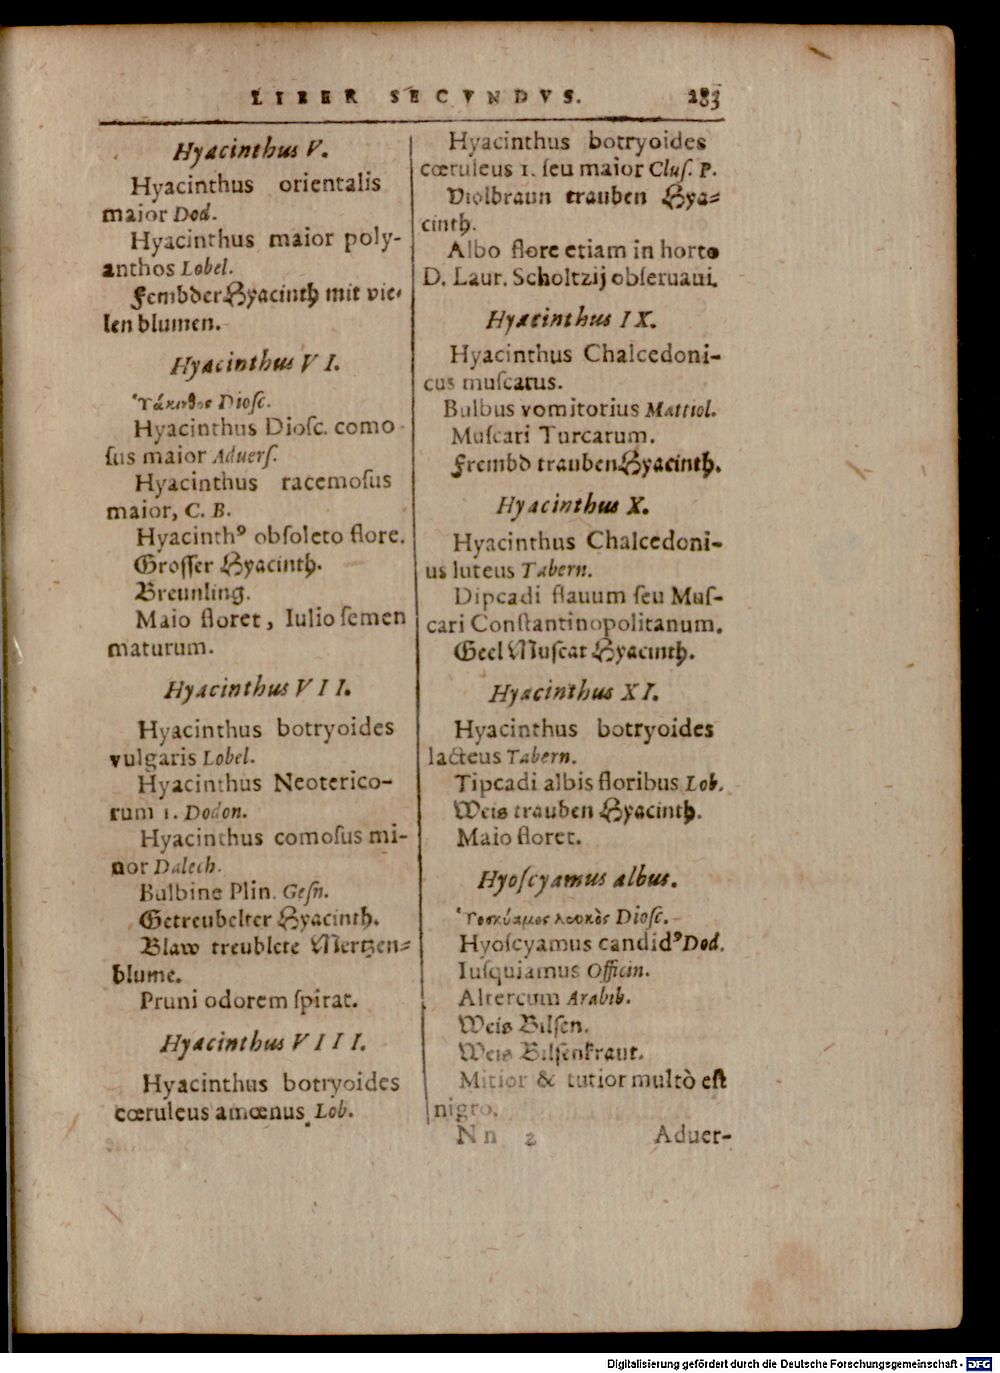 LIBER SECVNDVS. 283
Hyacinthus V.
Hyacinthus orientalis
maior Dod.
Hyacinthus maior poly-
anthos Lobel.
Fembder Hyacinth mit vie-
len blumen.
Hyacinthus VI.
Ὑάκινθος Diosc.
Hyacinthus Diosc. como
sus maior Aduers.
Hyacinthus racemosus
maior, C. B.
Hyacinthꝰ obsoleto flore.
Grosser Hyacinth.
Breunling.
Maio floret, Iulio semen
maturum.
Hyacinthus VII.
Hyacinthus botryoides
vulgaris Lobel.
Hyacinthus Neoterico-
rum 1. Dodon.
Hyacinthus comosus mi-
nor Dalech.
Bulbine Plin. Gesn.
Getreubelter Hyacinth.
Blaw treublete Mertzen-
blume.
Pruni odorem spirat.
Hyacinthus VIII.
Hyacinthus botryoides
cœruleus amœnus Lob.
Hyacinthus botryoides
cœruleus 1. seu maior Clus. P.
Violbraun trauben Hya-
cinth.
Albo flore etiam in horto
D. Laur. Scholtzij obseruaui.
Hyacinthus IX.
Hyacinthus Chalcedoni-
cus muscatus.
Bulbus vomitorius Mattiol.
Muscari Turcarum.
Frembd trauben Hyacinth.
Hyacinthus X.
Hyacinthus Chalcedoni-
us luteus Tabern.
Dipcadi flauum seu Mus-
cari Constantinopolitanum.
Geel Muscat Hyacinth.
Hyacinthus XI.
Hyacinthus botryoides
lacteus Tabern.
Tipcadi albis floribus Lob.
Weis trauben Hyacinth.
Maio floret.
Hyoscyamus albus.
Ὑοσκύαμος λευκὸς Diosc.
Hyoscyamus candidꝰ Dod.
Iusquiamus Officin.
Altercum Arabib.
Weis Bilsen.
Weis Bilsenkraut.
Mitior & tutior multò est
nigro.
Nn 2 Aduer-
Digitalisierung gefördert durch die Deutsche Forschungsgemeinschaft - DFG